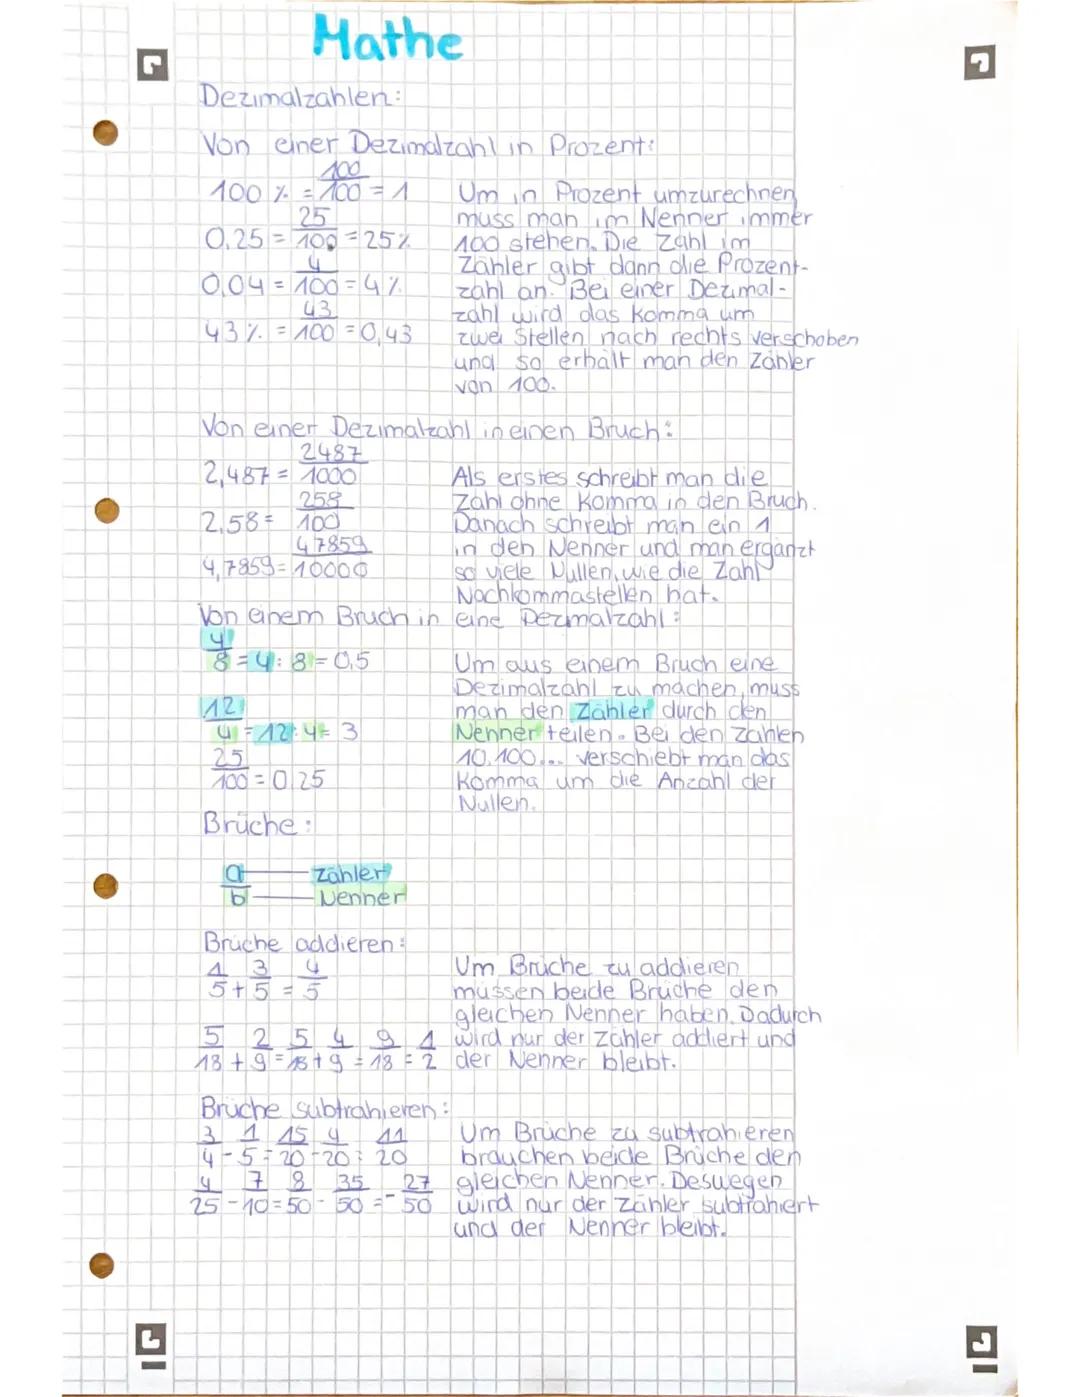 Mathe
Dezimalzahlen:
Von einer Dezimalzahl in Prozent:
100 % = 100/100 = 1
0,25 = 25/100 = 25%
0,04 = 4/100 = 4%
43% = 43/100 = 0,43
Um in Prozent umzurechnen
muss man im Nenner immer
100 stehen. Die Zahl im
Zähler gibt dann die Prozent-
zahl an. Bei einer Dezimal-
zahl wird das Komma um
zwei Stellen nach rechts verschoben
und so erhält man den Zähler
von 100.
Von einer Dezimalzahl in einen Bruch:
2,487 = 2487/1000
2,58 = 258/100
4,7859 = 47859/10000
Als erstes schreibt man die
Zahl ohne Komma in den Bruch.
Danach schreibt man ein 1
in den Nenner und man ergänzt
so viele Nullen, wie die Zahl
Nachkommastellen hat.
Von einem Bruch in eine Dezimalzahl:
4/8 = 4 : 8 = 0,5
12/4 = 12 : 4 = 3
25/100 = 0,25
Um aus einem Bruch eine
Dezimalzahl zu machen, muss
man den Zähler durch den
Nenner teilen. Bei den Zahlen
10,100... verschiebt man das
Komma um die Anzahl der
Nullen.
Brüche:
a Zähler
b Nenner
Brüche addieren:
1/5 + 3/5 = 4/5
5/18 + 2/9 = 5/18 + 4/9 = 9/18 = 1/2
Um Brüche zu addieren
müssen beide Brüche den
gleichen Nenner haben. Dadurch
wird nur der Zähler addiert und
der Nenner bleibt.
Brüche subtrahieren:
3/4 - 1/5 = 15/20 - 4/20 = 11/20
4/25 - 7/10 = 8/50 - 35/50 = - 27/50
Um Brüche zu subtrahieren
brauchen beide Brüche den
gleichen Nenner. Deswegen
wird nur der Zähler subtrahiert
und der Nenner bleibt.